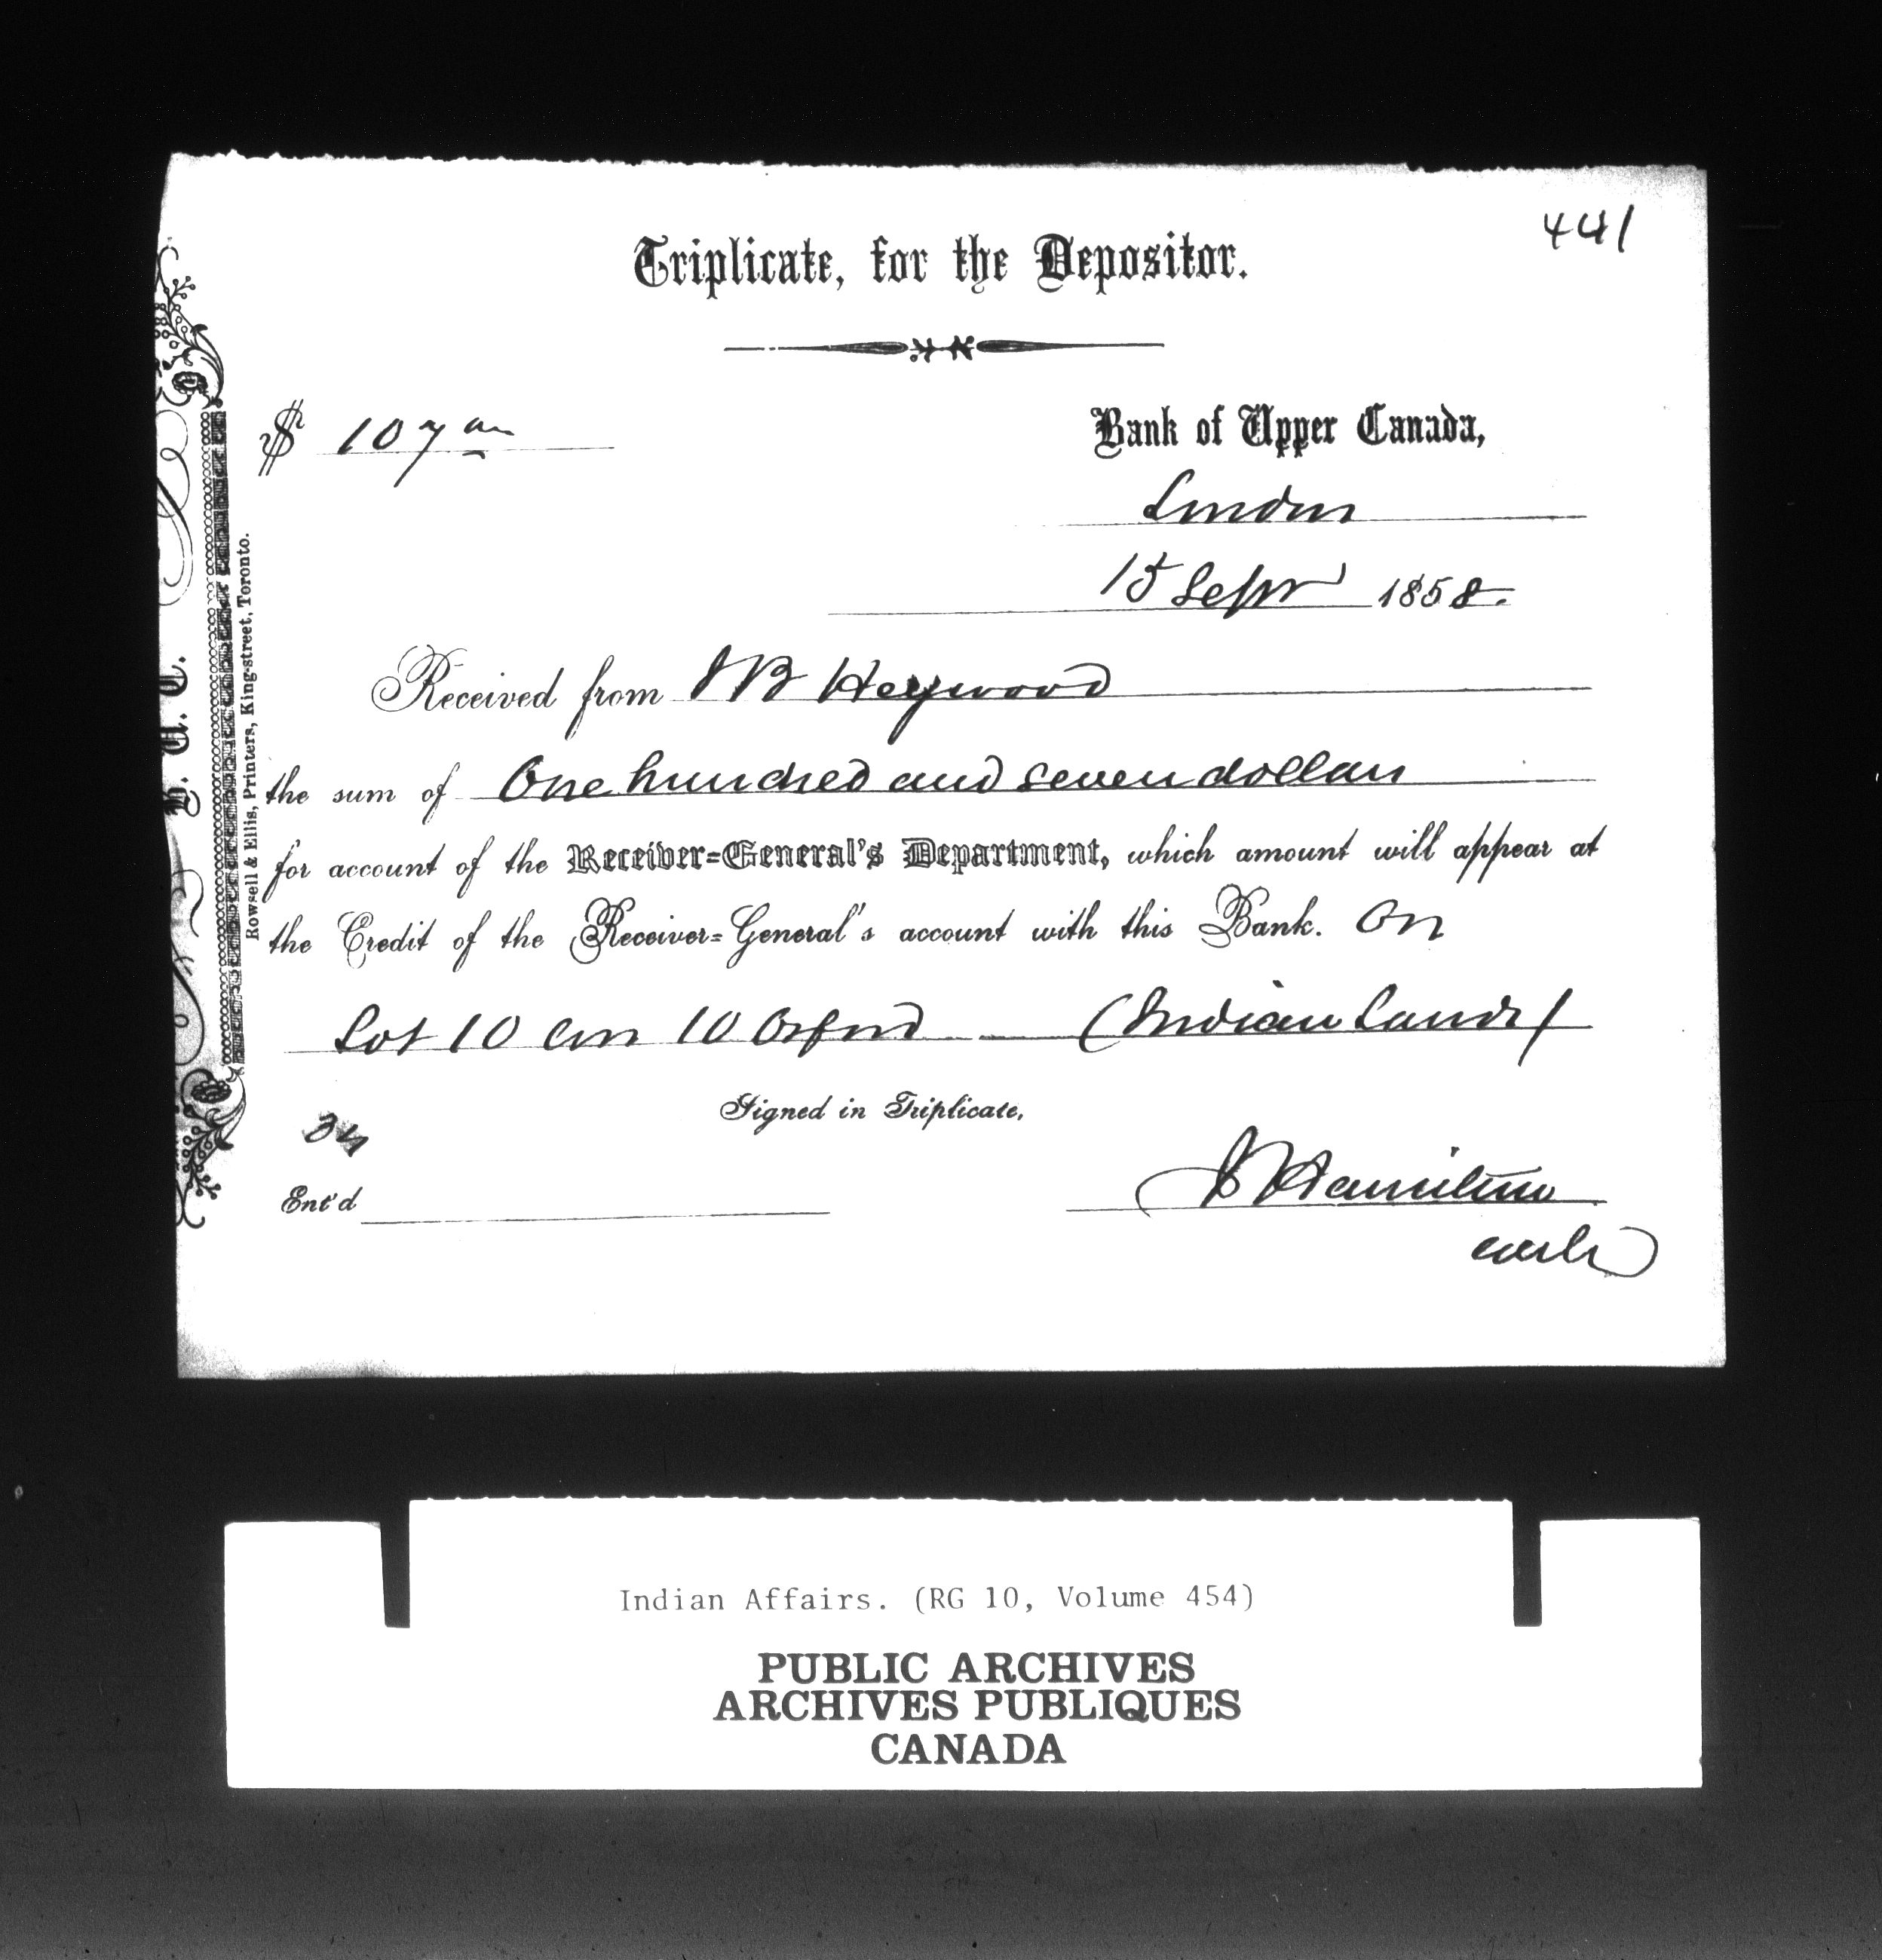 441
Triplicate, for the Depositor.
$ 107
Bank of Upper Canada,
London
15 Sepr 1858.
Received from J B Heywood
the sum of One hundred and seven dollars
for account of the Receiver=General's Department, which amount will appear at
the Credit of the Receiver=General's account with this Bank. On
Lot 10 Con 10 Orford — (Indian Lands)
Signed in Triplicate,
Ent'd
J Hamilton
B. U. C.
Rowsell & Ellis, Printers, King-street, Toronto.
Indian Affairs. (RG 10, Volume 454)
PUBLIC ARCHIVES
ARCHIVES PUBLIQUES
CANADA